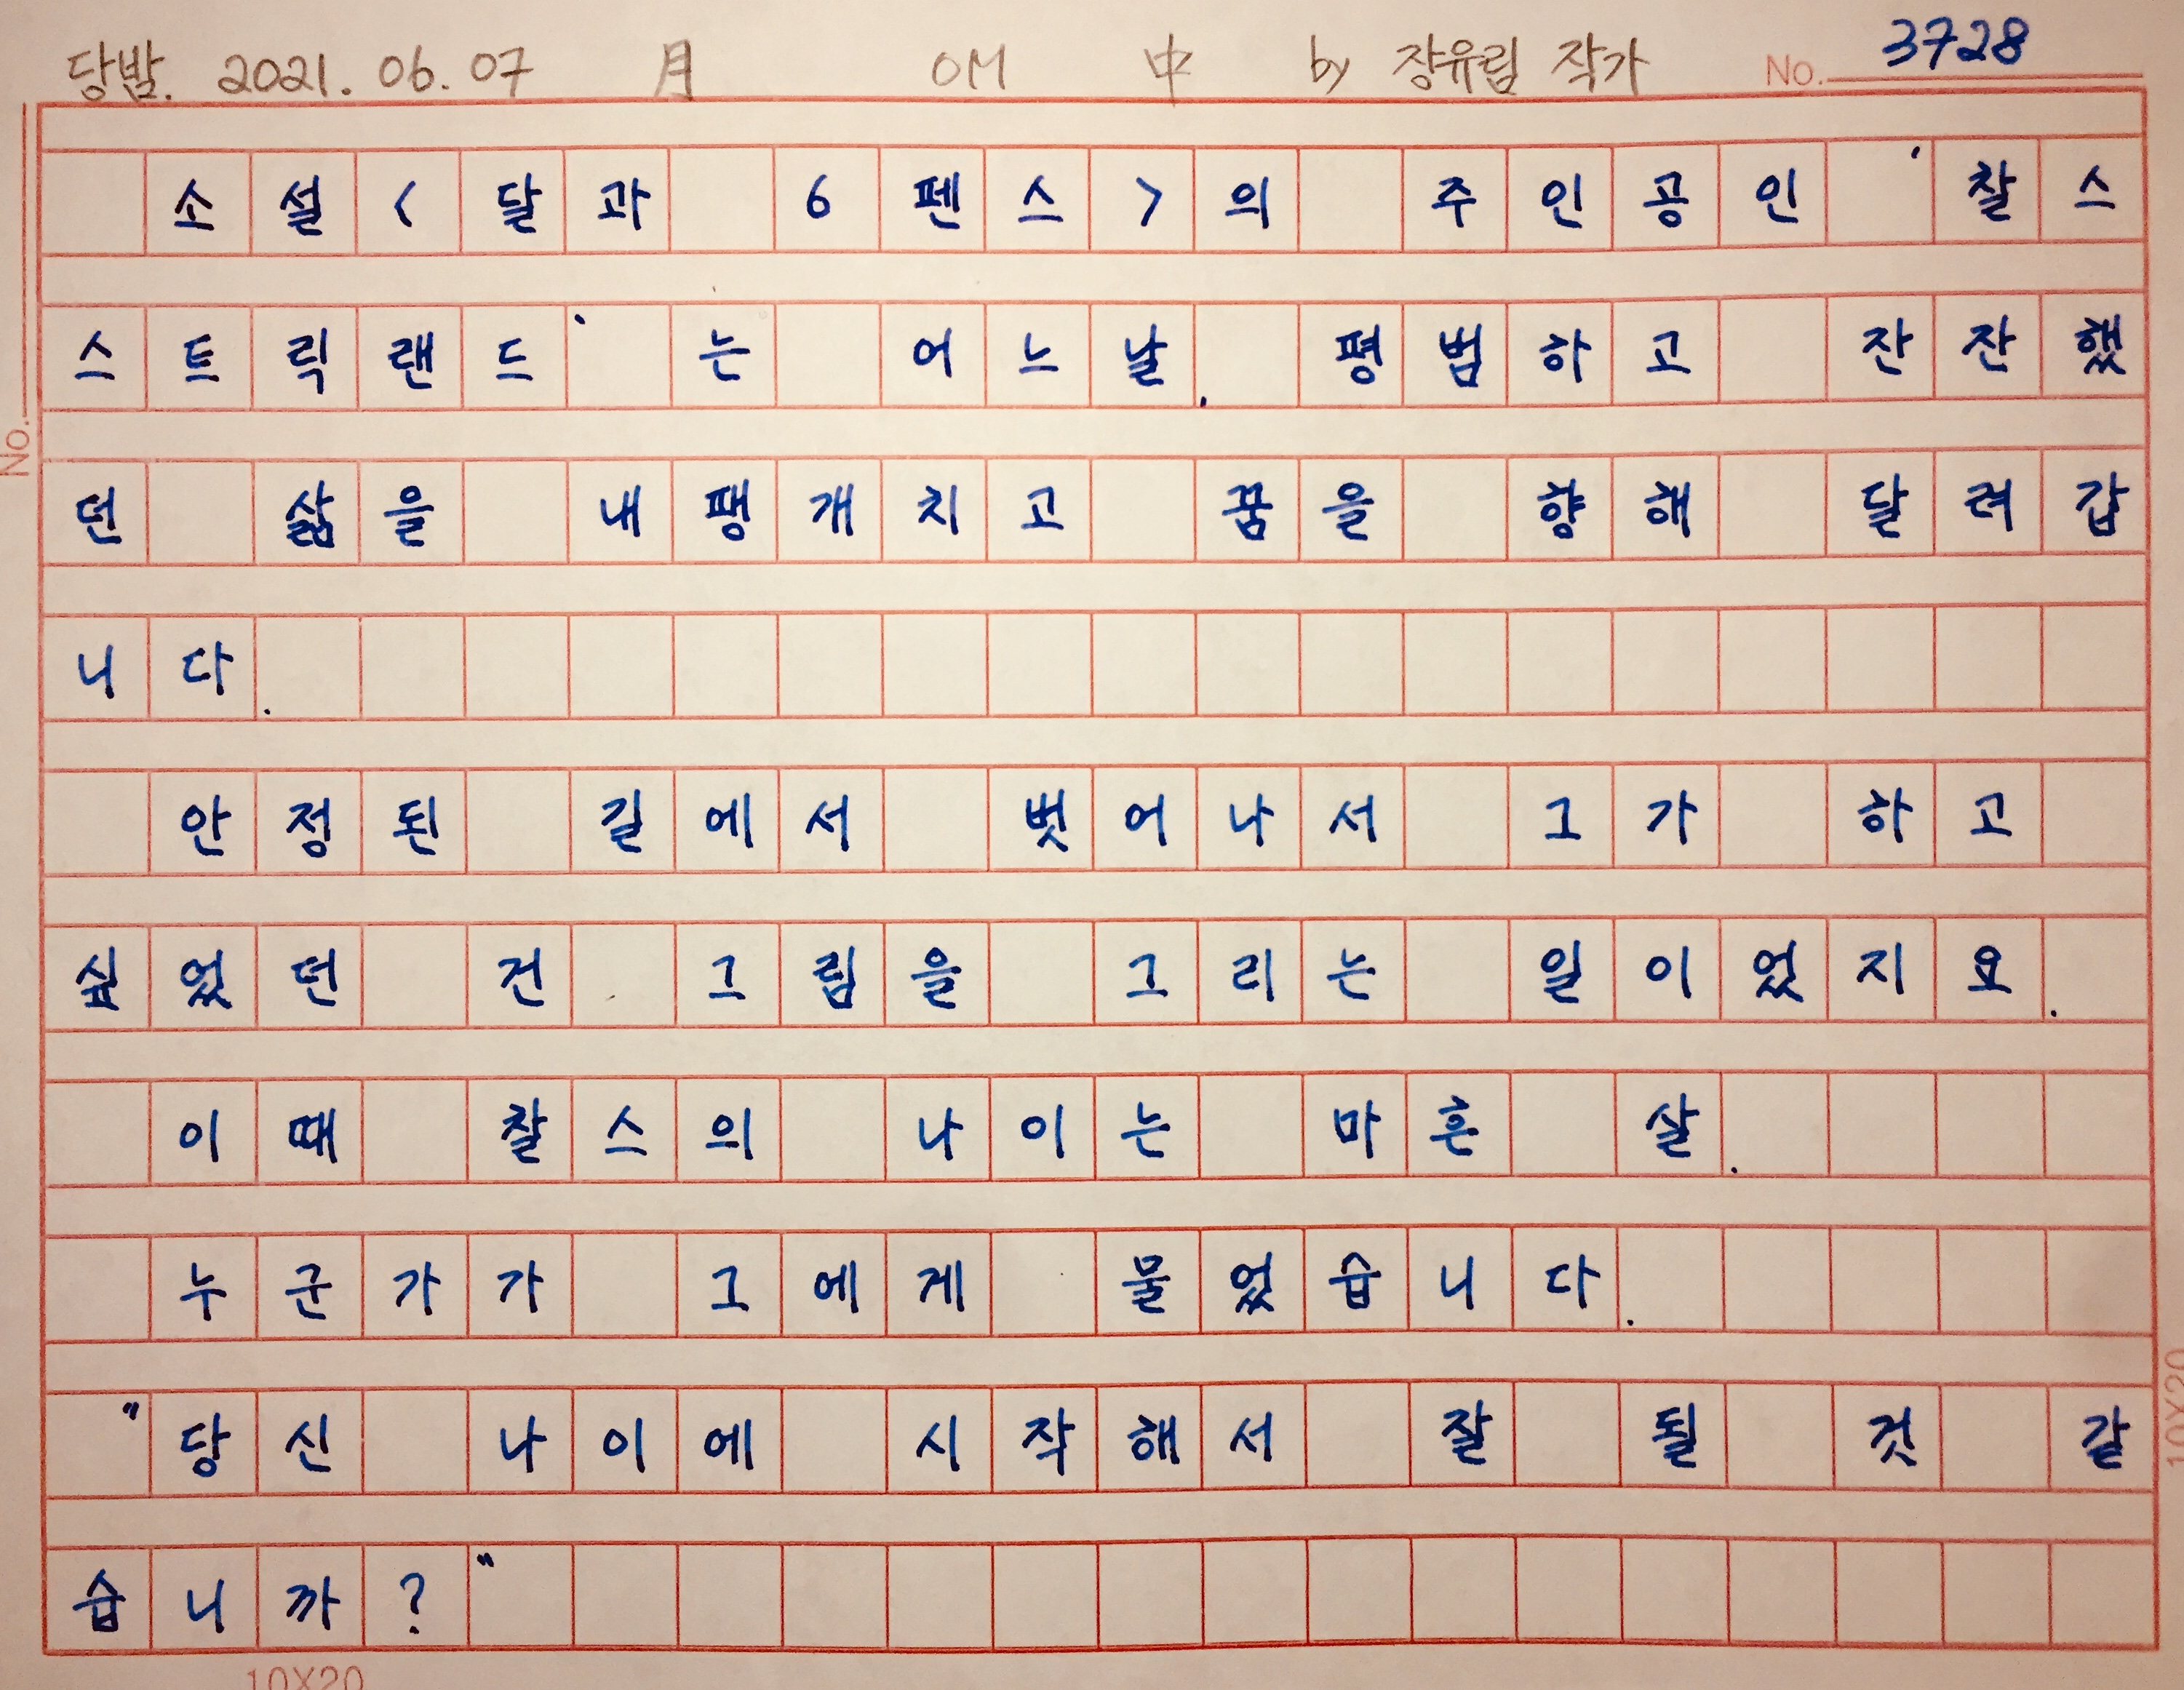 당발. 2021. 06. 07 月 OM 中 by 장유립 작가 No. 3728
소설<달과 6펜스>의 주인공인 '찰스
스트릭랜드'는 어느 날. 평범하고 잔잔했
던 삶을 내팽개치고 꿈을 향해 달려갑
니다.
안정된 길에서 벗어나서 그가 하고
싶었던 건 그림을 그리는 일이었지요.
이때 찰스의 나이는 마흔 살.
누군가가 그에게 물었습니다.
"당신 나이에 시작해서 잘 될 것 같
습니까?"
No.
10X20
10X20